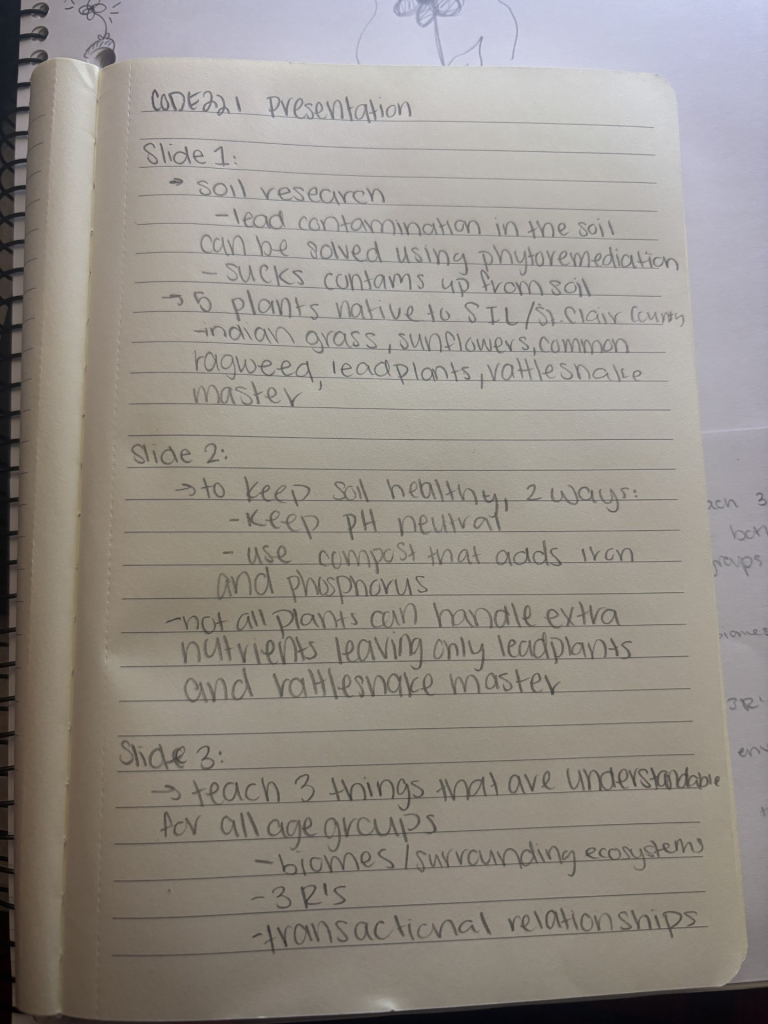 CODE221 Presentation
Slide 1:
→ soil research
-lead contamination in the soil
can be solved using phytoremediation
- sucks contams up from soil
→ 5 plants native to SIL/St. Clair County
-indian grass, sunflowers, common
ragweed, leadplants, rattlesnake
master
Slide 2:
→ to keep soil healthy, 2 ways:
-keep pH neutral
- use compost that adds iron
and phosphorus
-not all plants can handle extra
nutrients leaving only leadplants
and rattlesnake master
Slide 3:
→ teach 3 things that are understandable
for all age groups
-biomes/surrounding ecosystems
-3 R's
-transactional relationships